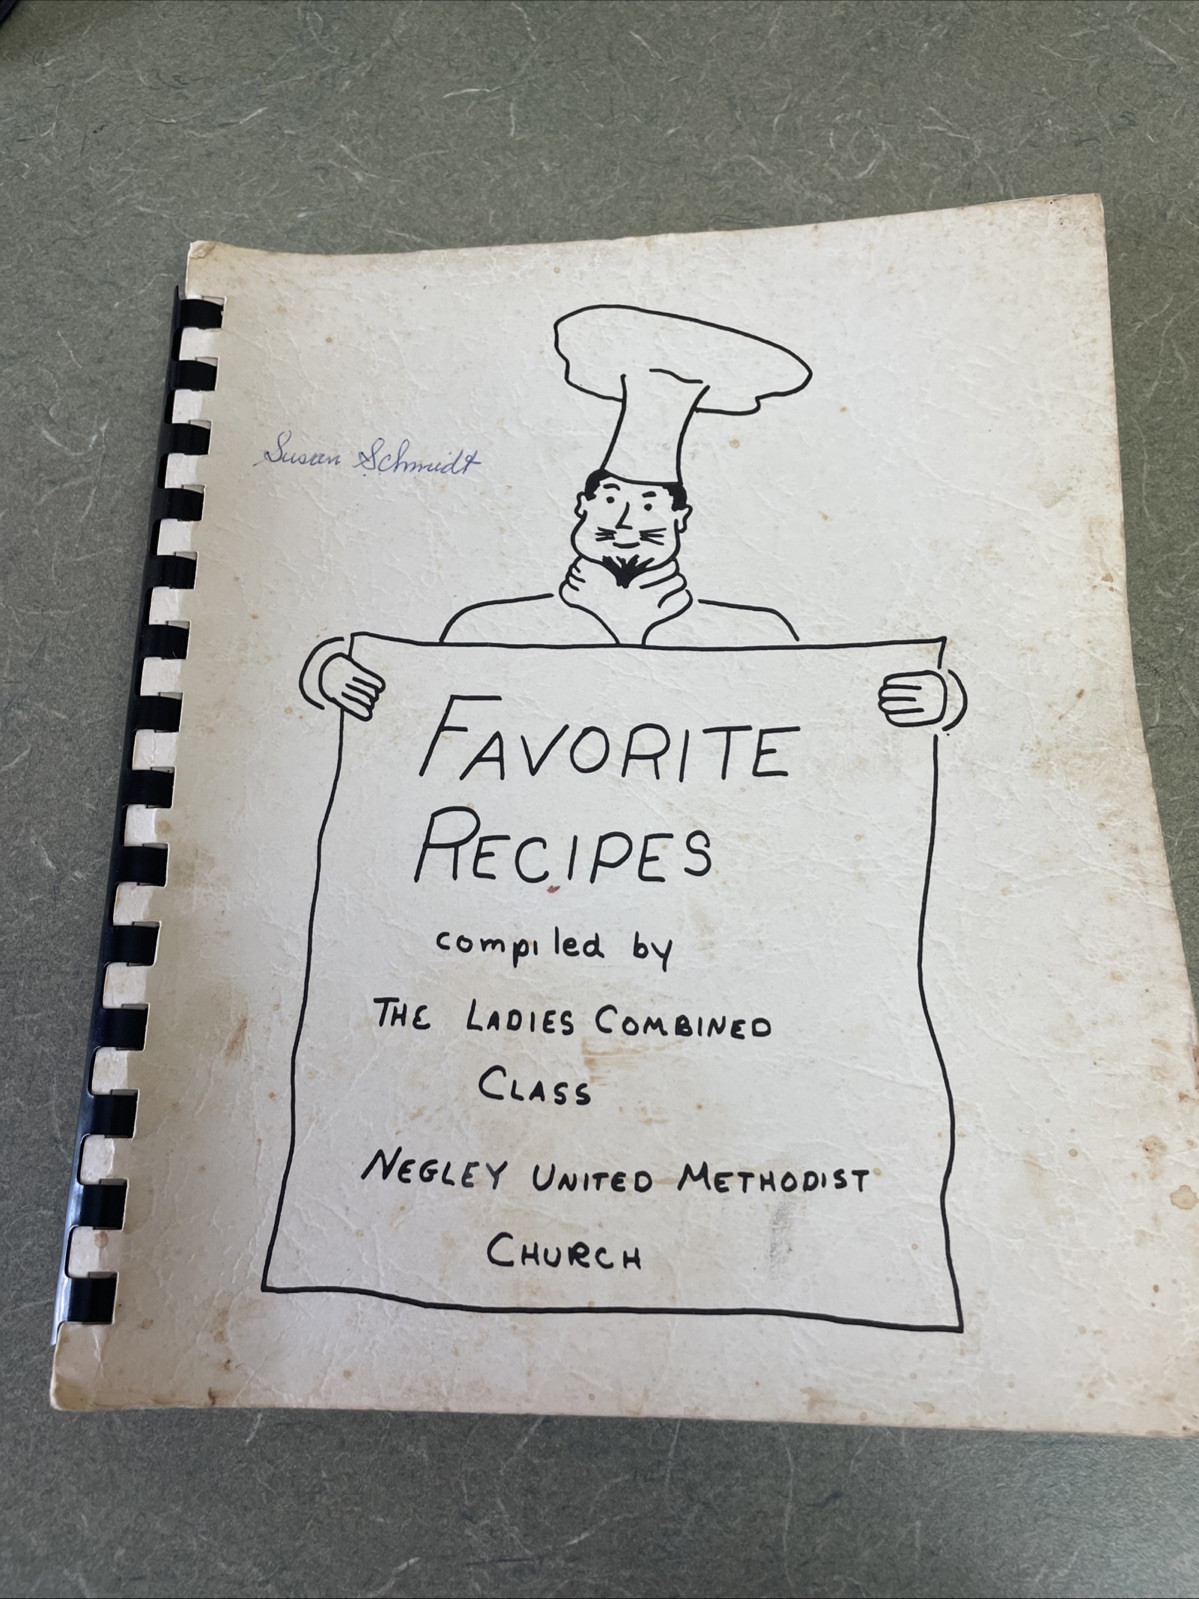 Susan Schmidt
FAVORITE
RECIPES
compiled by
THE LADIES COMBINED
CLASS
NEGLEY UNITED METHODIST
CHURCH